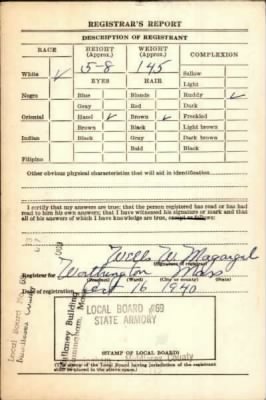 REGISTRAR'S REPORT
DESCRIPTION OF REGISTRANT
RACE HEIGHT (Approx.) WEIGHT (Approx.) COMPLEXION
White ✓ 5-8 145 Sallow
EYES HAIR Light
Negro Blue Blonde Ruddy ✓
Gray Red Dark
Oriental Hazel ✓ Brown ✓ Freckled
Brown Black Light brown
Indian Black Gray Dark brown
Bald Black
Filipino
Other obvious physical characteristics that will aid in identification
I certify that my answers are true; that the person registered has read or has had
read to him his own answers; that I have witnessed his signature or mark and that
all of his answers of which I have knowledge are true, except
Wells W. Magargal
Registrar for Worthington Mass
(City or county) (State)
Date of registration Oct 16 1940
LOCAL BOARD #69
STATE ARMORY
County
(STAMP OF LOCAL BOARD)
(The stamp of the Local Board having jurisdiction of the registrant
shall be placed in the above space.)
Local Board No. 69
Building